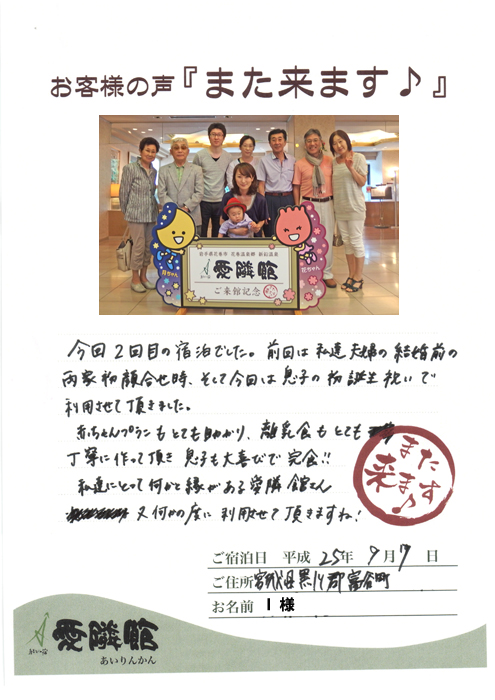 お客様の声『また来ます♪』
岩手県花巻市 花巻温泉郷 新鉛温泉
愛隣館
ご来館記念
今回2回目の宿泊でした。前回は私達夫婦の結婚前の
両家初顔合せ時、そして今回は息子の初誕生祝いで
利用させて頂きました。
赤ちゃんプランもとても助かり、離乳食もとても
丁寧に作って頂き 息子も大喜びで完食!!
私達にとって何かと縁がある愛隣館さん
又何かの度に利用させて頂きますね!
また
来ます♪
ご宿泊日 平成25年9月7日
ご住所 宮城県黒川郡富谷町
お名前 I 様
愛隣館
あいりんかん